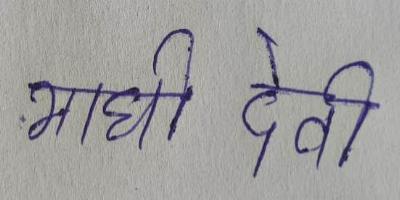 माघी देवी